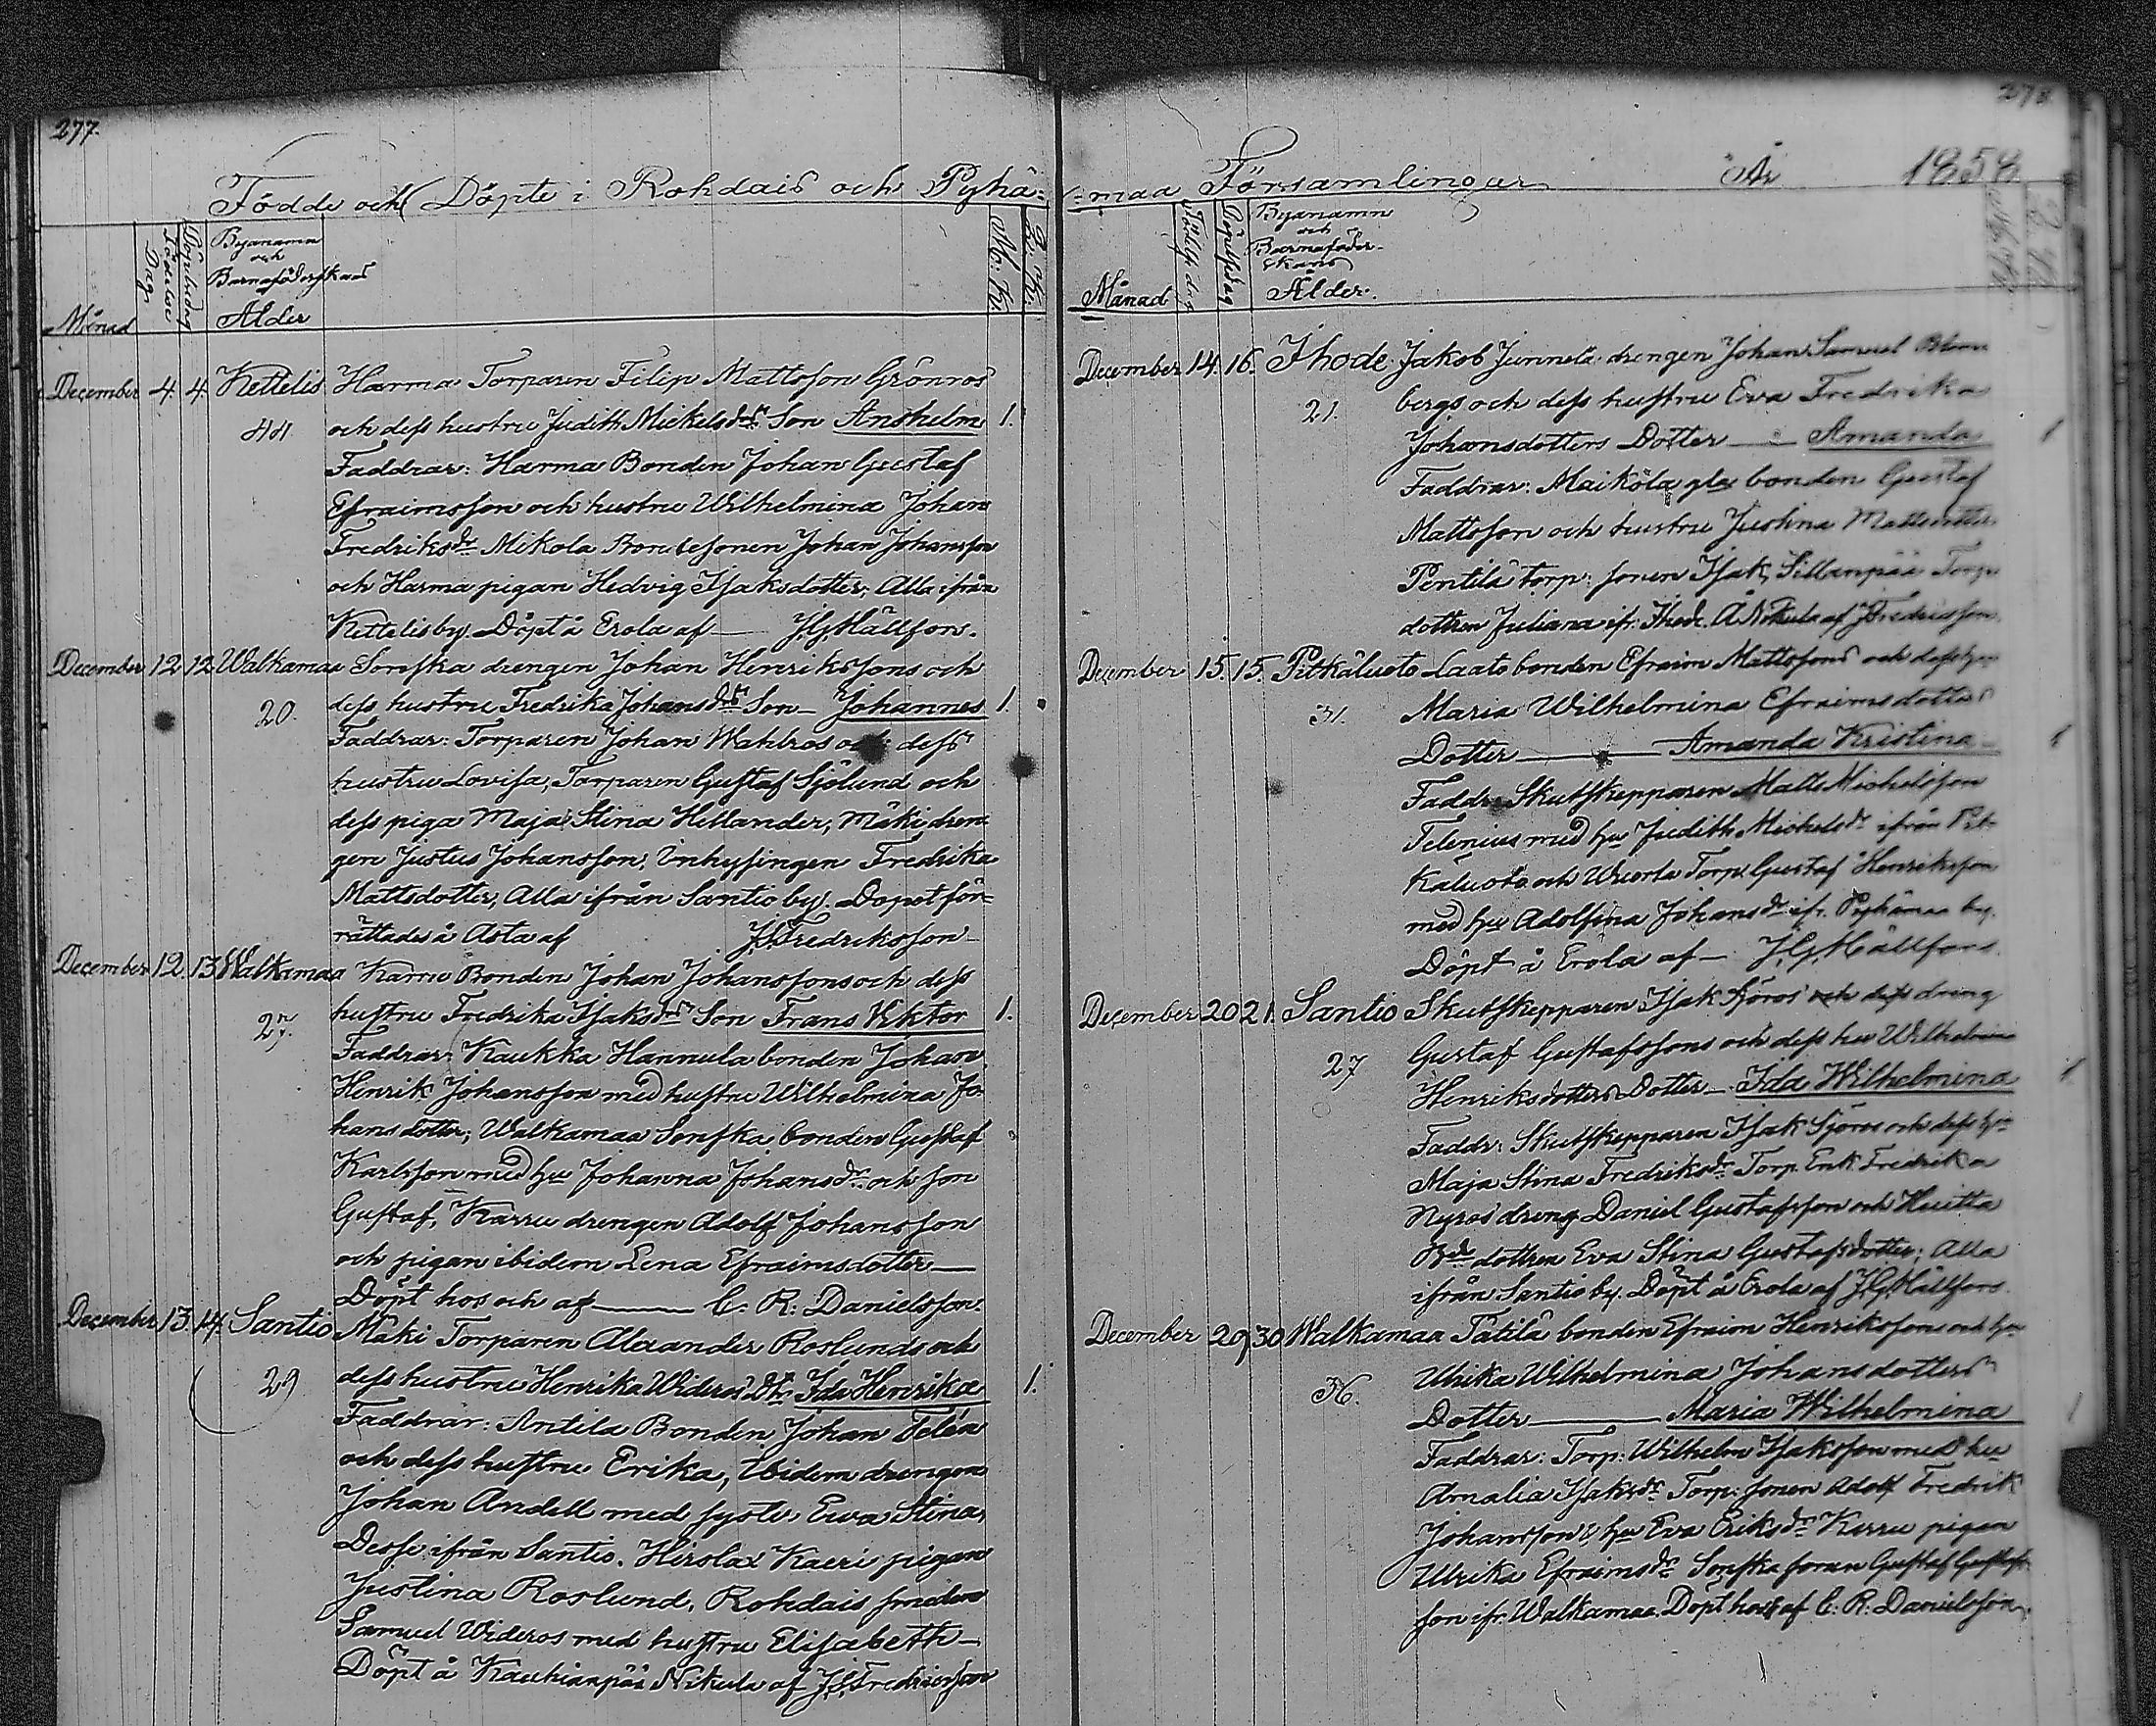 277.
Födde och Döpte i Rohdais och Pyhä=
Månad
Födelse Dag
Döpelsedag
Byanamn
och
Barnaföderskans
Ålder
December 4. 4. Kettelis Harma Torparen Filip Mattsson Grönros
44. och dess hustru Judith Mickelsdrs Son Anshelm 1.
Faddrar: Harma Bonden Johan Gustaf
Efraimsson och hustru Wilhelmina Johan
Fredriksdr Mikola Bondesonen Johan Johansson
och Harma pigan Hedvig Isaksdotter, Alla ifrån
Kettelis by. Döpt å Erola af — J.G. Hällfors.
December 12 12 Walkamaa Sonska drengen Johan Henrikssons och
20. dess hustru Fredrika Johansdrs Son — Johannes 1.
Faddrar: Torparen Johan Wahlros och dess
hustru Lovisa, Torparen Gustaf Sjölund och
dess piga Maja Stina Hellander, Mäki dren-
gen Justus Johansson, Inhysingen Fredrika
Mattsdotter, Alla ifrån Santio by. Dopet för=
rättades å Asta af J.S. Fredriksson
December 12. 13 Walkamaa Karru Bonden Johan Johanssons och dess
27. hustru Fredrika Isaksdrs Son Frans Viktor 1.
Faddrar: Kaukka Hannula bonden Johan
Henrik Johansson med hustru Wilhelmina Jo-
hansdotter; Walkamaa Sonska bonden Gustaf
Karlsson med hu Johanna Johansdr och son
Gustaf, Karru drengen Adolf Johansson
och pigan ibidem Lena Efraimsdotter —
Döpt hos och af — C. R. Danielsson.
December 13 14. Santio Mäki Torparen Alexander Roslunds och
29 dess hustru Henrika Wideros Dtr Ida Henrika 1.
Faddrar: Antila Bonden Johan Telén
och dess hustru Erika, Ibidem drengen
Johan Andell med syster Ewa Stina,
Desse ifrån Santio. Hirslax Kaeri pigan
Justina Roslund, Rohdais smeden
Samuel Wideros med hustru Elisabeth —
Döpt å Kauhianpää Nikula af J.S. Fredriksson
278
=maa Församlingar År 1858
Månad
Födelsedag
Döpelsedag
Byanamn
och
Barnaföder-
skans
Ålder.
December 14. 16. Ihode Jakob Junnela drengen Johan Samuel Blom
21. bergs och dess hustru Eva Fredrika
Johansdotters Dotter — Amanda 1
Faddrar: Maikola bonden Gustaf
Mattsson och hustru Justina Mattsdotter
Pentilä torp: sonen Isak, Sillanpää Torp
dottren Juliana ifr. Ihode. Å Nikula af J. Fredriksson.
December 15. 15. Pitkäluoto Laato bonden Efraim Mattssons och dess hus
31. Maria Wilhelmina Efraimsdotters
Dotter — Amanda Kristina 1
Faddr: Skutskepparen Matts Michelsson
Telenius med hu Judith Michelsdr ifrån Pit-
käluoto och Wuorla Torp Gustaf Henriksson
med hu Adolfina Johansdr ifr. Pyhämaa by.
Döpt å Erola af — J.G. Hällfors.
December 20 21. Santio Skutskepparen Isak Sjöros och dess dreng
27 Gustaf Gustafssons och dess hu Wilhelmina
Henriksdotters Dotter — Ida Wilhelmina 1
Faddr: Skutskepparen Isak Sjöros och dess hu
Maja Stina Fredriksdr Torp. Enk. Fredrika
Nyros dreng Daniel Gustafsson och Huitta
Bde dottren Eva Stina Gustafsdotter; Alla
ifrån Santio by. Döpt å Erola af J.G. Hällfors.
December 29 30 Walkamaa Tätilä bonden Efraim Henrikssons och hus
36. Ulrika Wilhelmina Johansdotters
Dotter — Maria Wilhelmina 1
Faddrar: Torp: Wilhelm Isaksson med hu
Amalia Isaksdr Torp: sonen Adolf Fredrik
Johansson & hu Eva Eriksdr Karru pigan
Ulrika Efraimsdr Sonska sonen Gustaf Gustafs-
son ifr. Walkamaa. Döpt hos & af C. R. Danielsson.